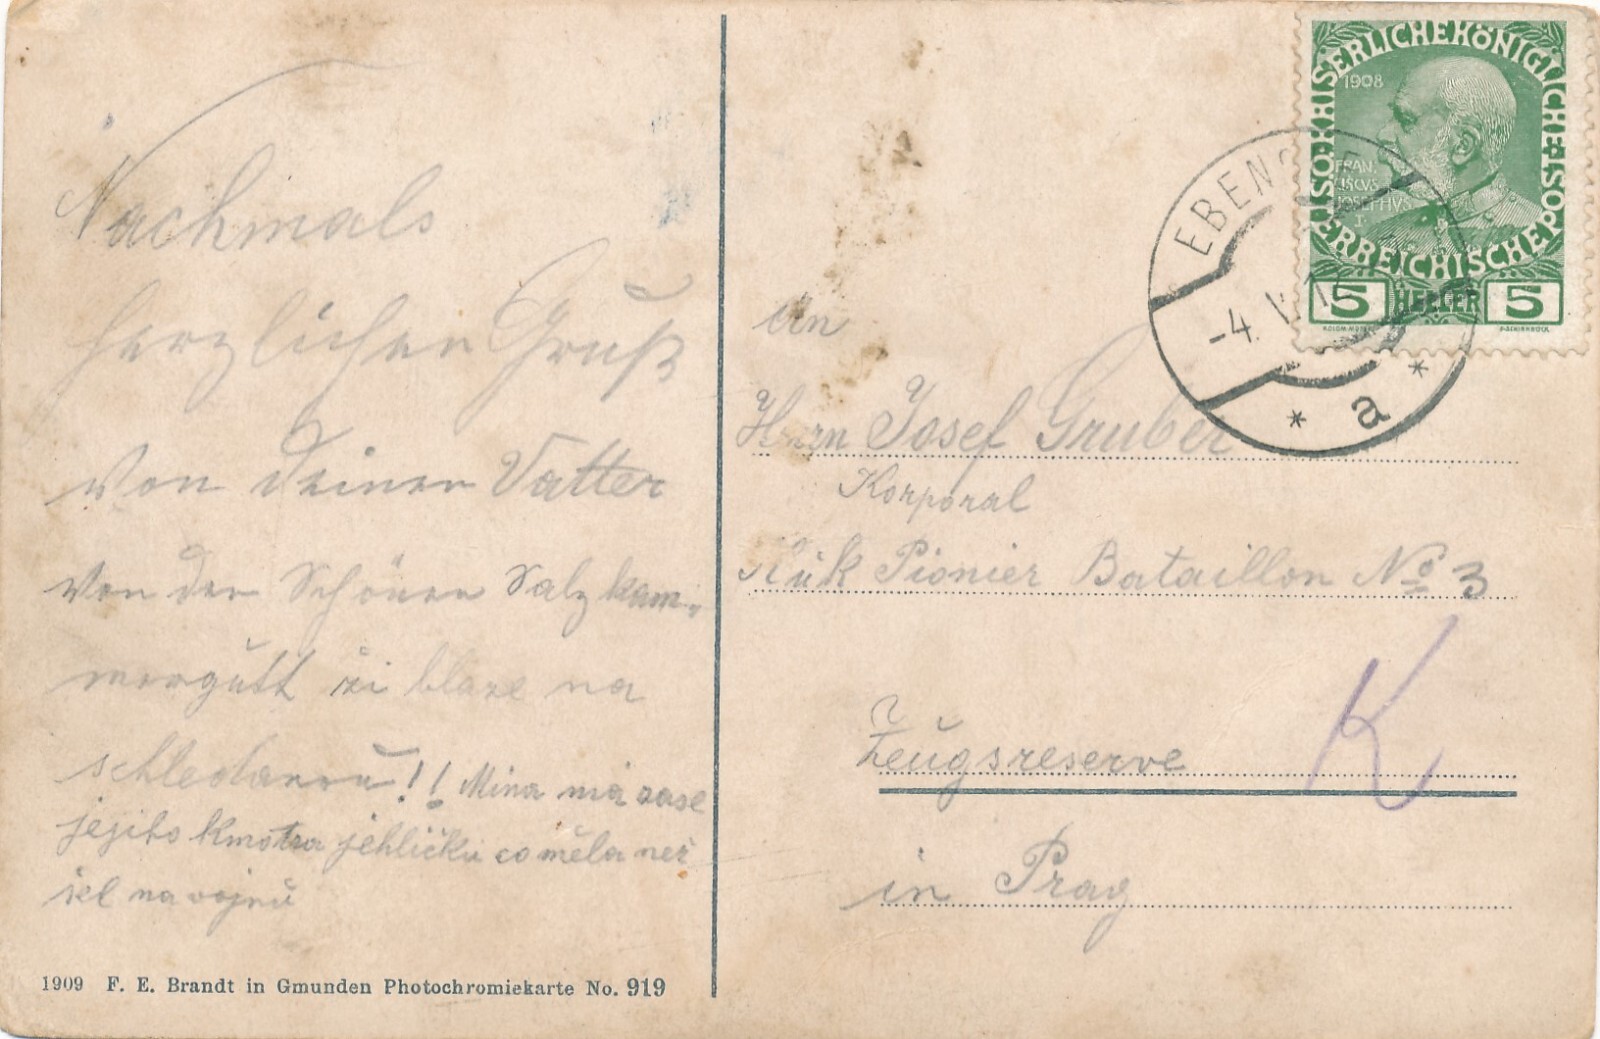 Nachmals
herzlichen Gruß
von deinen Vatter
von der Schönen Salzkam-
mergutt
Mina má zase
jejiho kmotra jehličku co měla než
šel na vojnu
1909 F. E. Brandt in Gmunden Photochromiekarte No. 919
KAISERLICHE KÖNIGLICHE ÖSTERREICHISCHE POST
1908
FRAN
CISCVS
JOSEPHVS
I.
5 HELLER 5
EBENS
-4. V
* a *
An
Herrn Josef Gruber
Korporal
KuK Pionier Bataillon No 3
Zeugsreserve
K
in Prag